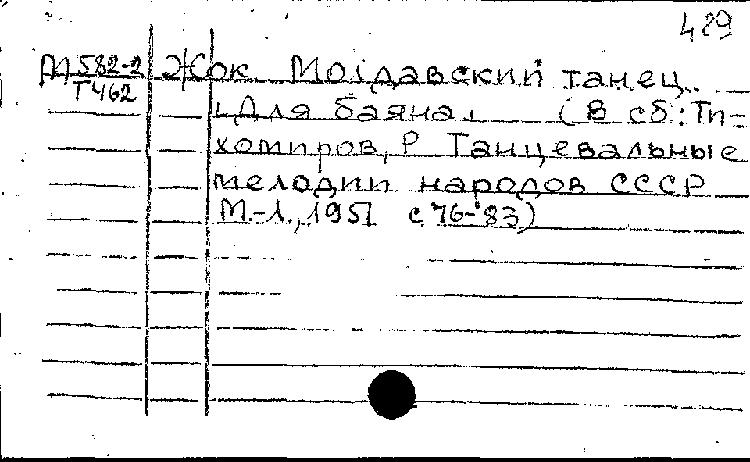 489
М 582-2 Жок. Молдавский танец.
Т 462 [Для баяна]. (В сб.: Ти=
хомиров, Р Танцевальные
мелодии народов СССР
М.-Л., 1951 с 76-83)